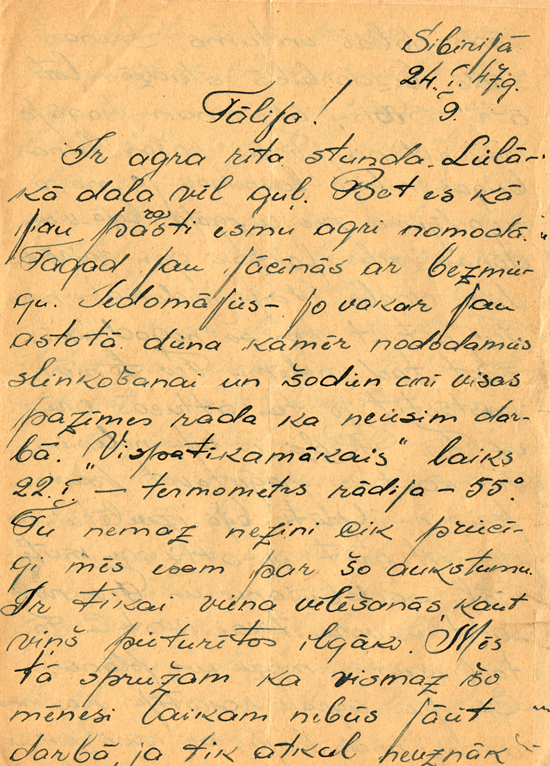 Sibirijā
24. I. 47.g.
9.
Tālija!
Ir agra rīta stunda. Lielā-
kā daļa vēl guļ. Bet es kā
jau parasti esmu agri nomodā.
Tagad jau jācīnās ar bezmie-
gu. Iedomājies – jo vakar jau
astotā diena kamēr nododamies
slinkošanai un šodien arī visas
pazīmes rāda ka neiesim dar-
bā. "Vispatīkamākais" laiks
22. I. – termometrs rādīja – 55°.
Tu nemaz nezini cik priecī-
gi mēs esam par šo aukstumu.
Ir tikai viena vēlēšanās, kaut
viņš pieturētos ilgāk. Mēs
tā spriežam ka vismaz šo
mēnesi laikam nebūs jāiet
darbā, ja tik atkal neuznāk